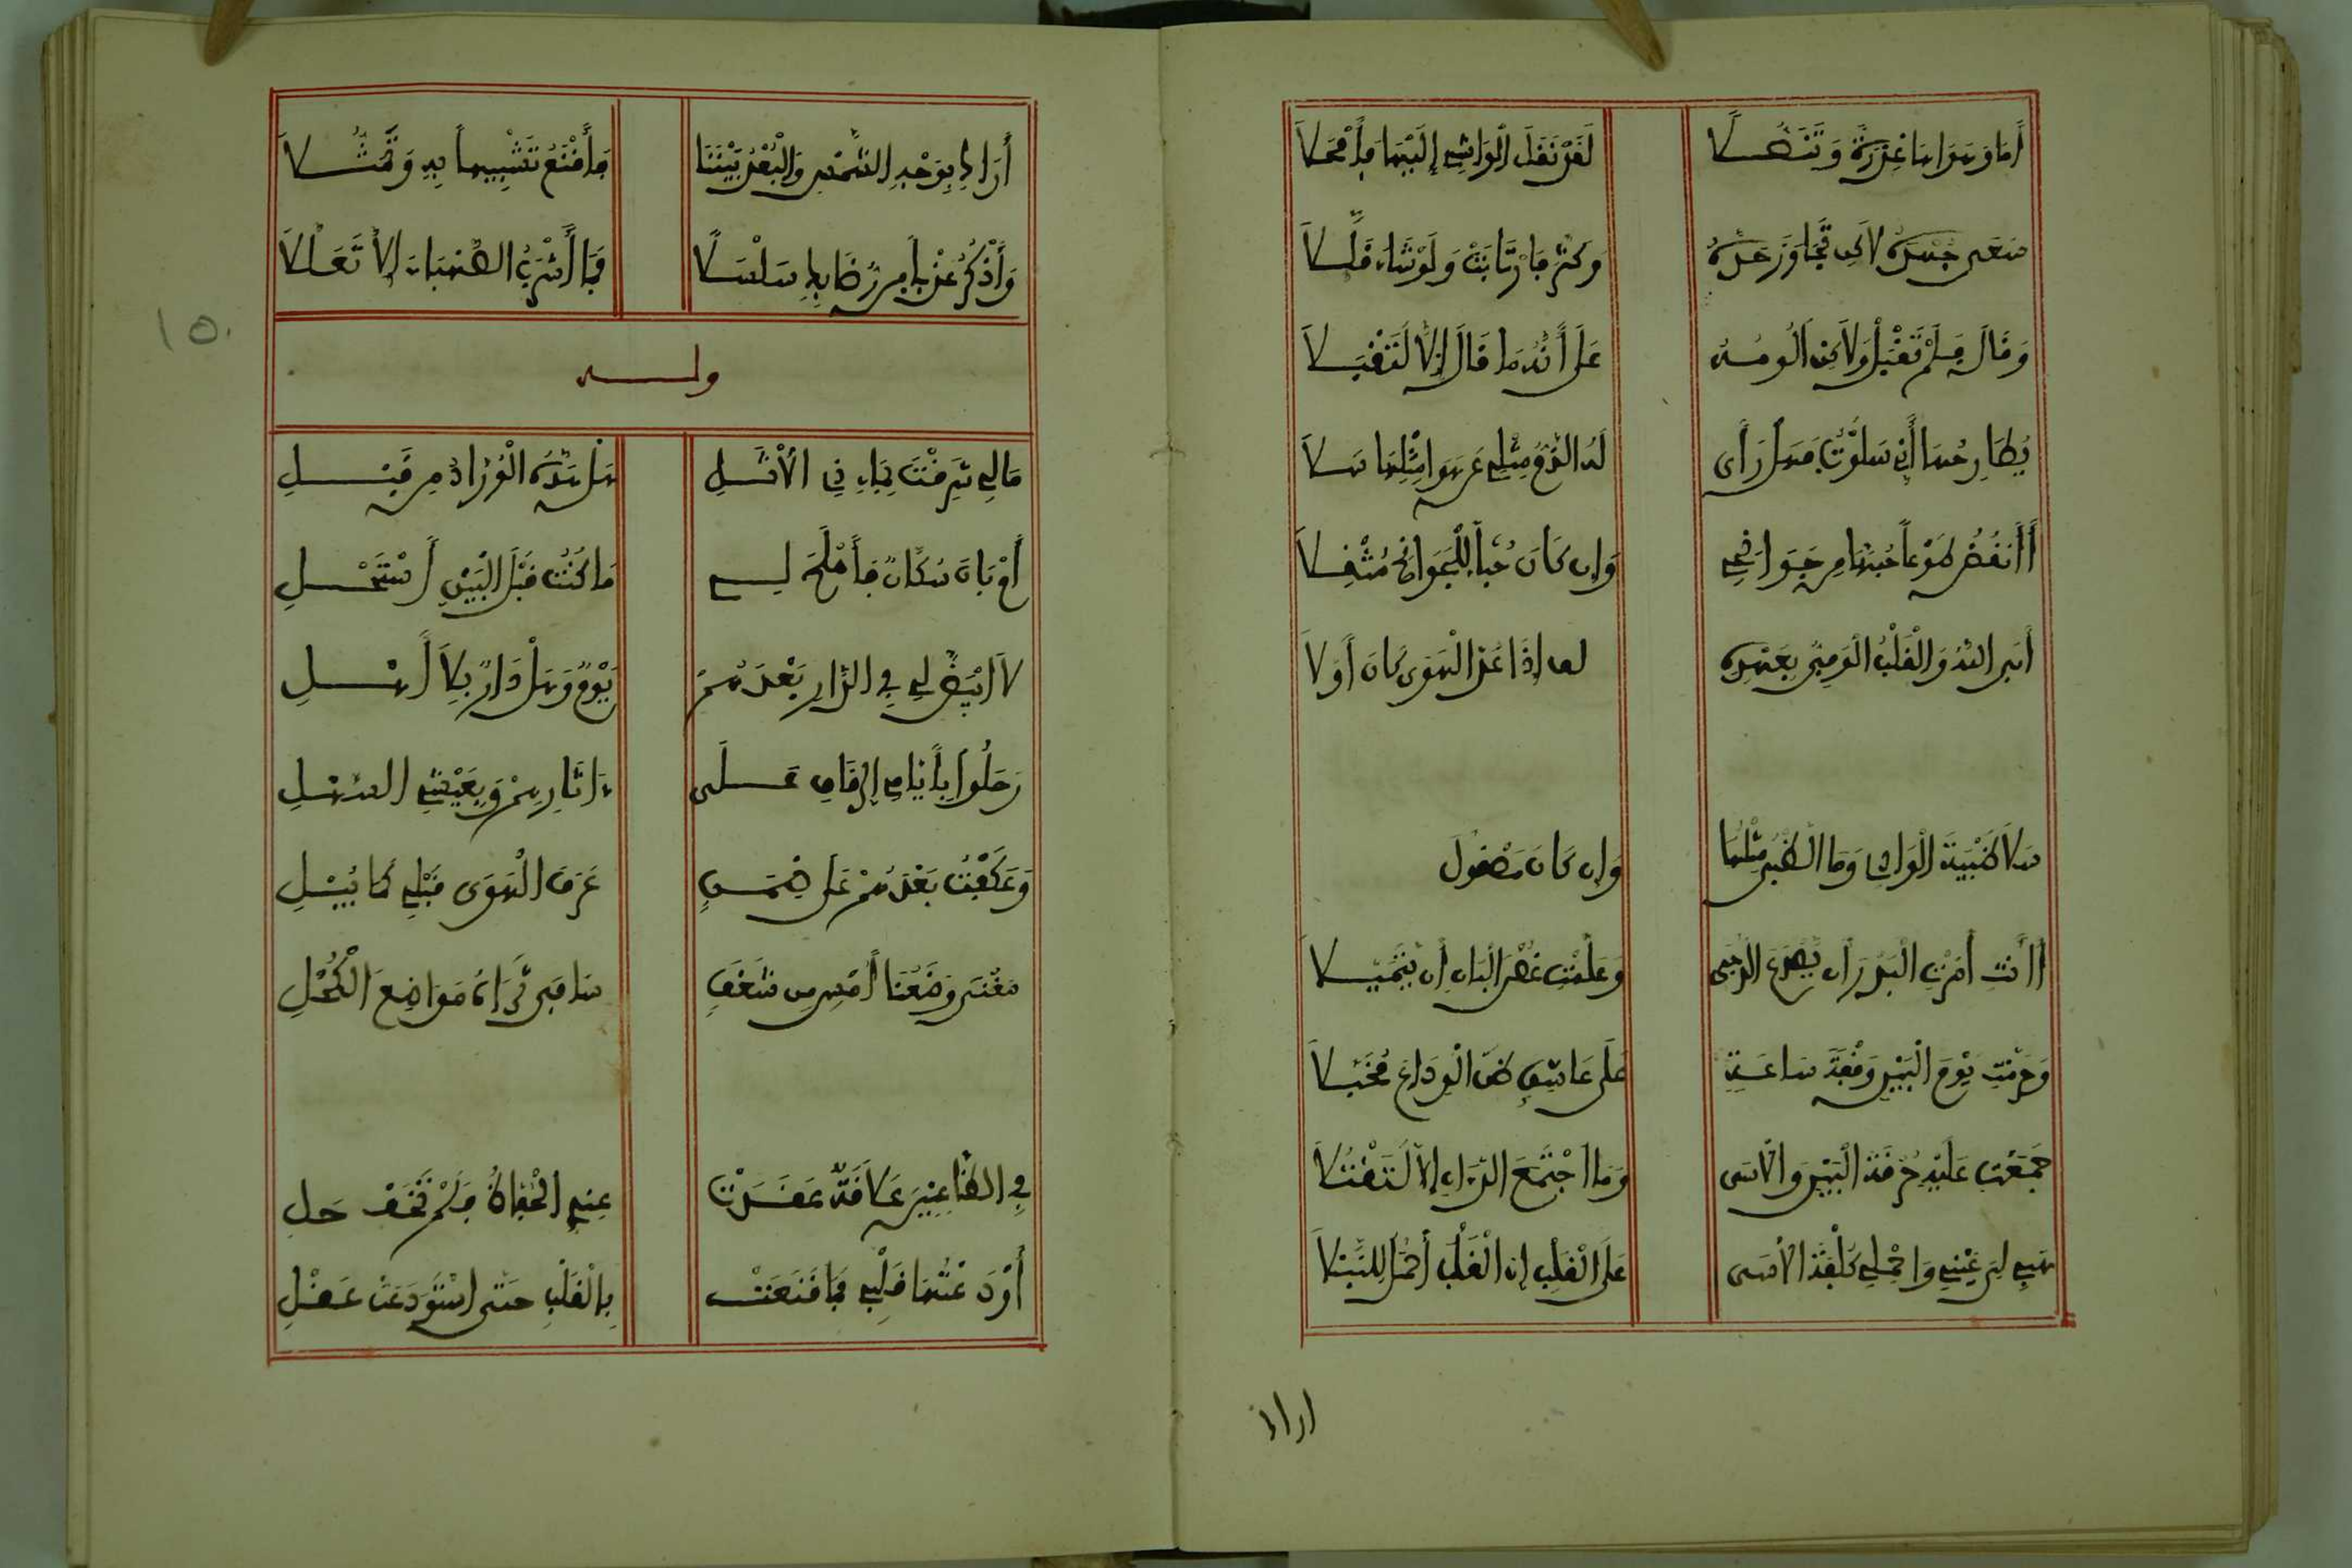 أَمَا وَهَوَاهَا عِذْرَةً وَتَنَصُّلَا لَقَدْ نَقَلَ الْوَاشِي إِلَيْهَا فَأَمْحَلَا
سَعَى جُهْدَهُ لَاكِن تَجَاوَزَ حَدَّهُ وَكَثَّرَ فَارْتَابَتْ وَلَوْ شَاءَ قَلَّلَا
وَقَالَ فَلَمْ تَقْبَلْ وَلَاكِن أَلُومُهُ عَلَى أَنَّهُ مَا قَالَ إِلَّا لَتَقْبَلَا
يُطَارِحُهَا أَنِّي سَلَوْتُ فَهَل رَأَى لَهُ الذَّمُّ مِثْلِي عَن هَوَا مِثْلِهَا سَلَا
أَأَنفُضُ طَوْعاً حُبَّهَا مِن جَوَانِحِي وَإِن كَانَ حُبّاً لِلْجَوَانِحِ مُثْقِلَا
أَبَى اللهُ وَالْقَلْبُ الْوَفِيُّ بِعَهْدِهِ إِذَا عُدَّ الْهَوَى كَانَ أَوَّلَا
سَلَا ظَبْيَةَ الْوَادِي وَمَا الظَّبْيُ مِثْلَهَا وَإِن كَانَ مَصْقُولَ
أَأَنتِ أَمَرْتِ الْبَدْرَ أَن يَصْدَعَ الدُّجَى وَعَلَّمْتِ غُصْنَ الْبَانِ أَن يَتَمَيَّلَا
وَحَرَّمْتِ يَوْمَ الْبَيْنِ وَقْفَةَ سَاعَةٍ عَلَى عَاشِقٍ ظَنَّ الْوِدَاعَ مُحَلَّلَا
جَمَعْتِ عَلَيْهِ حُرْقَةَ الْبَيْنِ وَالْأَسَى وَمَا اجْتَمَعَ الدَّاءَانِ إِلَّا لَتَقْتُلَا
هَبِي لِي عَيْنِي وَاحْمِلِي كُلْفَةَ الْأَسَى عَلَى الْقَلْبِ إِنَّ الْقَلْبَ أَحْمَلُ لِلْبَلَا
اراك
أَرَاكِ بِوَجْهِ الشَّمْسِ وَالْبُعْدُ بَيْنَنَا فَأَقْنَعُ تَشْبِيهاً بِهِ وَتَمَثُّلَا
وَأَذْكُرُ عَذْباً مِن رُضَابِكِ سَلْسَلًا فَمَا أَشْرَبُ الصَّهْبَاءَ إِلَّا تَعَلُّلَا
ولـــه
مَا لِي شَرِقْتُ بِمَاءِ ذِي الْأَثْلِ هَل سَدَّهُ الْوُرَّادُ مِن قَبْلِ
أَوْ بَانَ سُكَّانٌ فَأَمْلَحَ لِي مَا كُنْتُ قَبْلَ الْبَيْنِ أَسْتَحْلِ
لَا ابْيَضَّ لِي فِي الدَّارِ بَعْدَهُمُ يَوْمٌ وَهَلْ دَارٌ بِلَا أَهْلِ
رَحَلُوا بِأَيَّامِي الرِّقَاقِ عَلَى ءَاثَارِهِمْ وَبِعَيْشِي السَّهْلِ
وَعَكَفْتُ بَعْدَهُمُ عَلَى عَرَفَ الْهَوَى قَبْلِي كَمَا يُبْلِ
أَمْسِ مِن شَغَفٍ مَوَاضِعَ الْكُحْلِ
فِي الظَّاعِنِينَ عَلَاقَةٌ عَقَدَتْ عَنِّي الْحُقَاةُ فَلَمْ تَخَفْ حَلِ
أَوْدَعْتُهَا قَلْبِي فَمَا قَنَعَتْ بِالْقَلْبِ حَتَّى اسْتَوْدَعَتْ عَقْلِ
١٥٠